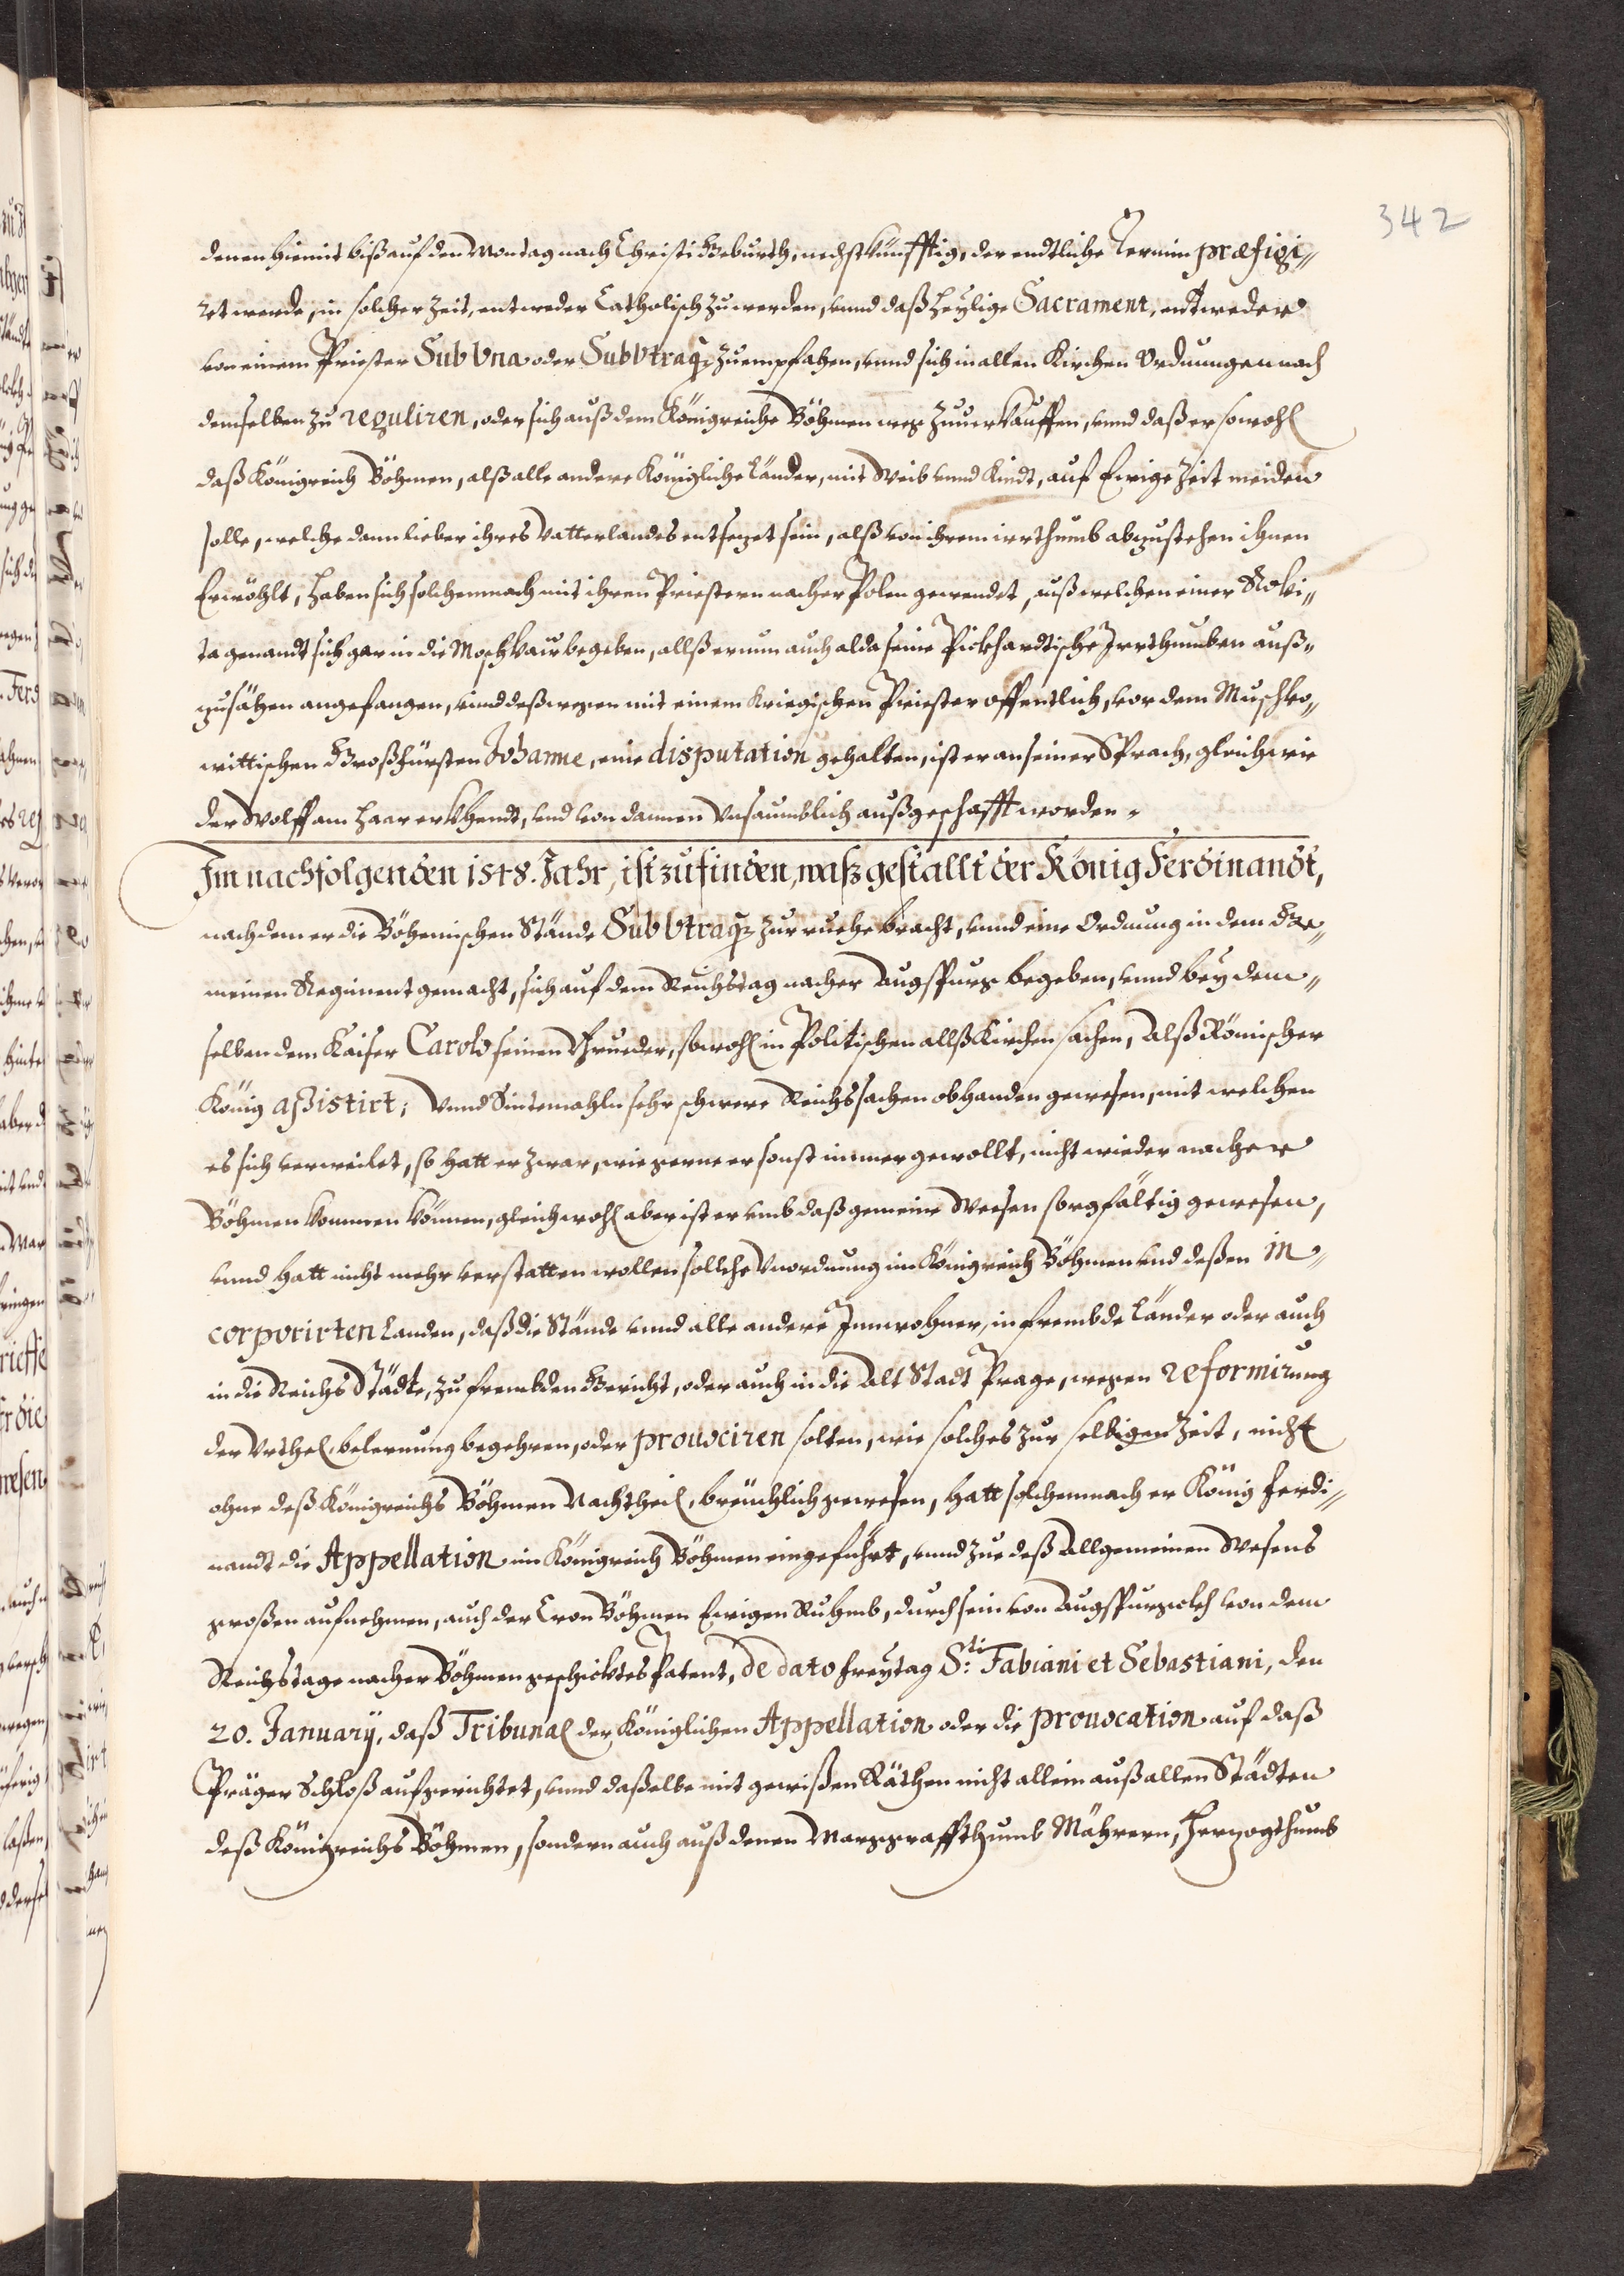 342
denen hiemit biß auf den Montag nach Christi Geburth, nechst künfftig, der endtliche Termin præfigi„
ret werde, in solcher Zeit, entweder Catholisch zu werden, vnnd daß heylige Sacrament, entweder
von einem Priester Sub Vna oder Sub Vtraq3 zu empfahen, vnnd sich in allen Kirchen Ordnungen nach
demselben zu reguliren, oder sich auß dem Königreiche Böhmen weg zuuerkauffen, vnnd daß er sowohl
daß Königreich Böhmen, alß alle andere Königliche Länder, mit Weib vnnd Kindt, auf Ewige Zeit meiden
solle, welche dann lieber ihres Vatterlandes entsezet sein, alß von ihrem irrthumb abzustehen ihnen
Erwöhlt, haben sich solchemnach mit ihren Priestern nacher Polen gewendt, auß welchen einer Roki„
ta genandt sich gar in die Moschkau begeben, allß er nun auch alda seine Pickhardtische Irrthumben auß„
zusähen angefangen, vnnd deßwegen mit einem Kriegischen Priester offentlich, vor dem Muschko„
wittischen Großfürsten Johanne, eine disputation gehalten, ist er an seiner Sprach, gleich wie
der Wolff am Haar erkhendt, vnd von dannen Vnsaumblich außgeschafft worden.
Im nachfolgenden 1548. Jahr, ist zu finden, waß gestallt der König Ferdinandt,
nach dem er die Böhemischen Stände Sub Vtraq3 zur ruehe bracht, vnnd eine Ordnung in dem Ge„
meinen Regiment gemacht, sich auf dem Reichstag nacher Augspurg begeben, vnnd bey dem„
selben dem Kaiser Carolo seinen Brueder, sowohl in Politischen allß Kirchen sachen, Alß Römischer
König aßistirt; Vnnd Sintemahln sehr schwere Reichssachen obhanden gewesen, mit welchen
es sich verweilet, so hatt er zwar, wie gerne er sonst immer gewollt, nicht wieder nacher
Böhmen kommen können, gleichwohl aber ist er vmb daß gemeine Weesen sorgfältig gewesen,
vnnd hatt nicht mehr verstatten wollen sollche Vnordnung im Königreich Böhmen vnd deßen in„
corporirten Landen, daß die Stände vnnd alle andere Innwohner, in frembde Länder oder auch
in die Reichs Städte, zu frembden Gericht, oder auch in die Alt Stadt Prage, wegen reformirung
der Vrthel, belernung begehren, oder prouociren solten, wie solches zur selbigen Zeit, nicht
ohne deß Königreichs Böhmen Nachtheil, breüchlich gewesen, hatt solchemnach er König Ferdi„
nandt die Appellation im Königreich Böhmen eingeführt, vnnd zue deß Allgemeinen Wesens
großen aufnehmen, auch der Cron Böhmen Ewigen Ruhmb, durch sein von Augspurg von dem
Reichstage nacher Böhmen geschicktes Patent, de dato Freytag S:ti Fabiani et Sebastiani, den
20. January, daß Tribunal der Königlichen Appellation oder die prouocation auf daß
Präger Schloß aufgerichtet, vnnd daßelbe mit gewißen Räthen nicht allein auß allen Städten
deß Königreichs Böhmen, sondern auch auß denen Marggraffthumb Mährern, Herzogthumb